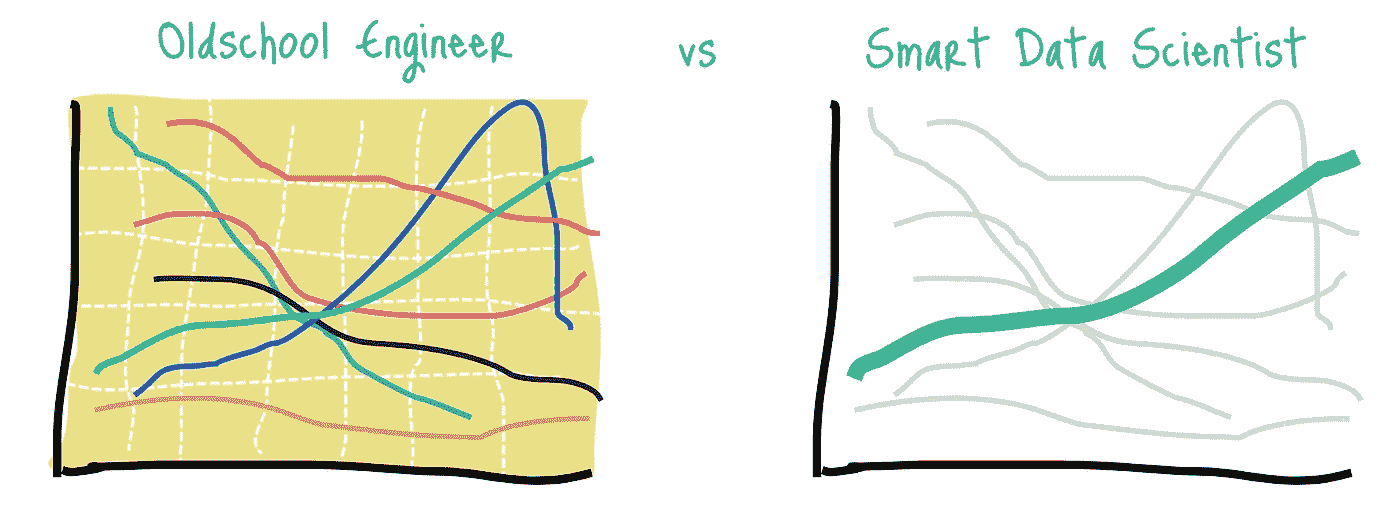 Oldschool Engineer vs Smart Data Scientist